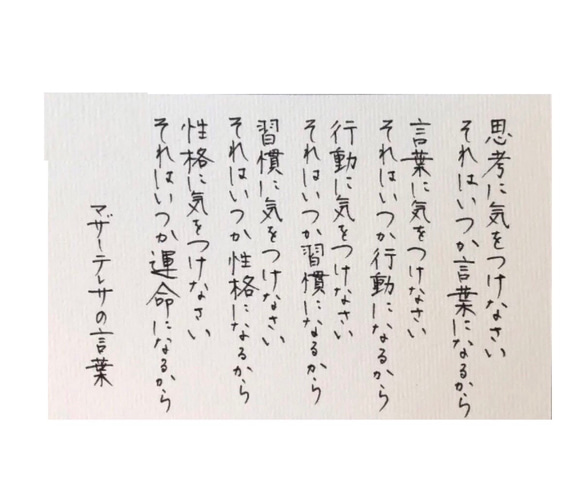 思考に気をつけなさい
それはいつか言葉になるから
言葉に気をつけなさい
それはいつか行動になるから
行動に気をつけなさい
それはいつか習慣になるから
習慣に気をつけなさい
それはいつか性格になるから
性格に気をつけなさい
それはいつか運命になるから
マザーテレサの言葉